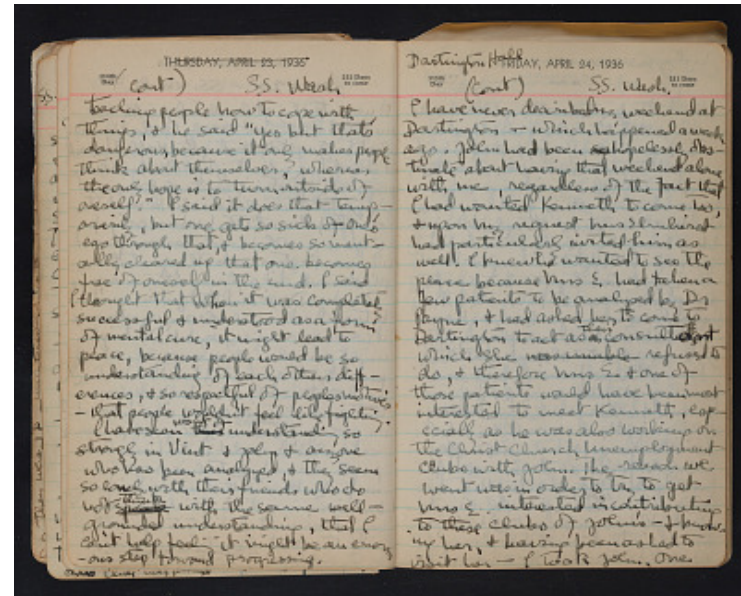 THURSDAY, APRIL 23, 1936
(cont) S.S. Wash.
teaching people how to cope with
things, & he said "Yes but that's
dangerous because it only makes people
think about themselves, whereas
the only hope is to turn outside of
oneself." I said it does that temp-
orarily, but one gets so sick of one's
ego through that, & becomes so ment-
ally cleared up that one becomes
free of oneself in the end. I said
I thought that when it was completely
successful & understood as a form
of mental cure, it might lead to
peace, because people would be so
understanding of each other's diff-
erences, & so respectful of people's motives
- that people wouldn't feel like fighting.
I have seen this understanding so
strongly in & & anyone
who has been analyzed, & they seem
so with their friends who do
not with the same well-
grounded understanding, that I
can't help feeling it might be an enorm-
-ous step toward progressing.
Dartington Hall
FRIDAY, APRIL 24, 1936
(cont) S.S. Wash.
I have never described my weekend at
Dartington - which happened a week
ago. John had been so hopelessly obs-
tinate about having that weekend alone
with me, regardless of the fact that
I had wanted Kenneth to come too,
& upon my request Mrs Elmhirst
had particularly invited him as
well. I knew he wanted to see the
place because Mrs E. had taken a
few patients to be analyzed by Dr
Payne, & had asked her to come to
Dartington to act as their consultant
which she refused to
do, & therefore Mrs E & one of
those patients would have been most
interested to meet Kenneth, esp-
ecially as he was also working on
the Christ Church Unemployment
Clubs with John. The reason we
went was in order to try to get
Mrs E. interested in contributing
to these clubs of John's - & know-
ing her, & having been asked to
visit her - I took John. One